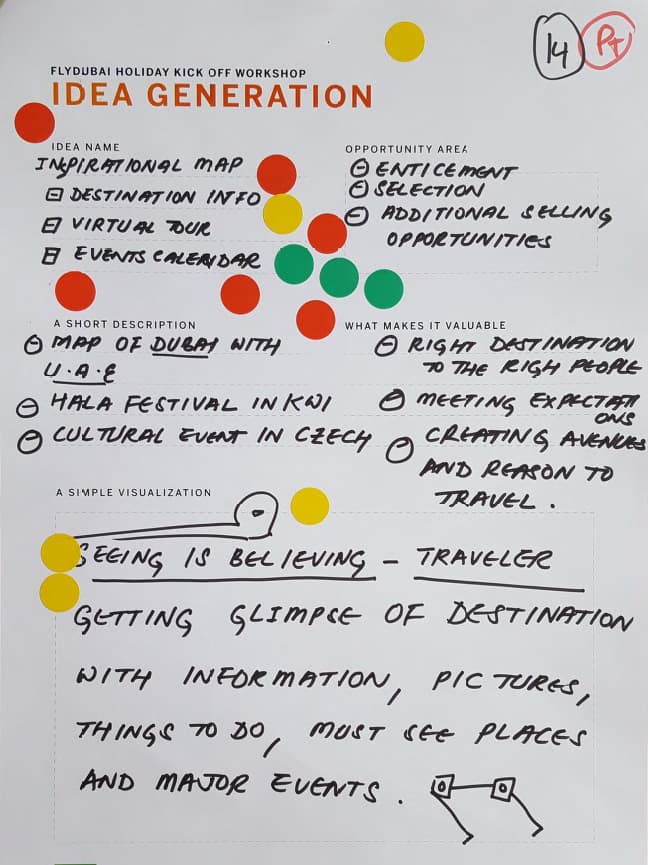 14 PT
FLYDUBAI HOLIDAY KICK OFF WORKSHOP
IDEA GENERATION
IDEA NAME
INSPIRATIONAL MAP
DESTINATION INFO
VIRTUAL TOUR
EVENTS CALENDAR
OPPORTUNITY AREA
ENTICEMENT
SELECTION
ADDITIONAL SELLING
OPPORTUNITIES
A SHORT DESCRIPTION
MAP OF DUBAI WITH
U.A.E
HALA FESTIVAL IN KWI
CULTURAL EVENT IN CZECH
WHAT MAKES IT VALUABLE
RIGHT DESTINATION
TO THE RIGH PEOPLE
MEETING EXPECTATI
ONS
CREATING AVENUES
AND REASON TO
TRAVEL.
A SIMPLE VISUALIZATION
SEEING IS BELIEVING - TRAVELER
GETTING GLIMPSE OF DESTINATION
WITH INFORMATION, PICTURES,
THINGS TO DO, MUST SEE PLACES
AND MAJOR EVENTS.